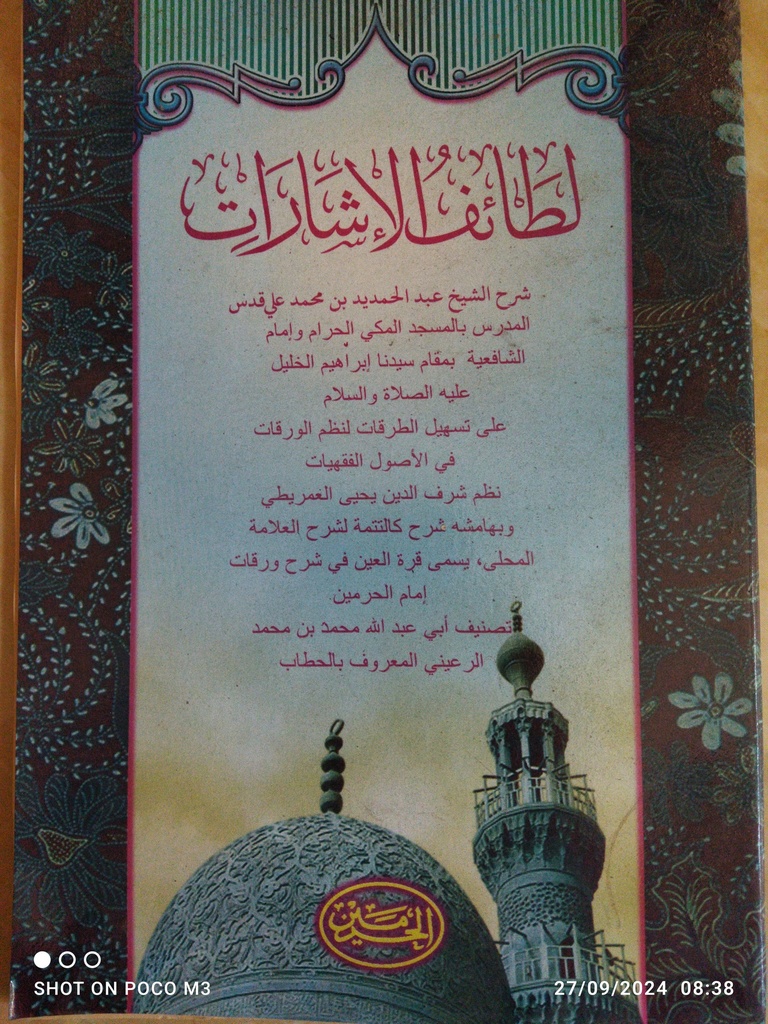 لَطَائِفُ الْإِشَارَاتِ
شرح الشيخ عبد الحمديد بن محمد علي قدس
المدرس بالمسجد المكي الحرام وإمام
الشافعية بمقام سيدنا إبراهيم الخليل
عليه الصلاة والسلام
على تسهيل الطرقات لنظم الورقات
في الأصول الفقهيات
نظم شرف الدين يحيى العمريطي
وبهامشه شرح كالتتمة لشرح العلامة
المحلى، يسمى قرة العين في شرح ورقات
إمام الحرمين
تصنيف أبي عبد الله محمد بن محمد
الرعيني المعروف بالحطاب
الحرمين
SHOT ON POCO M3
27/09/2024 08:38